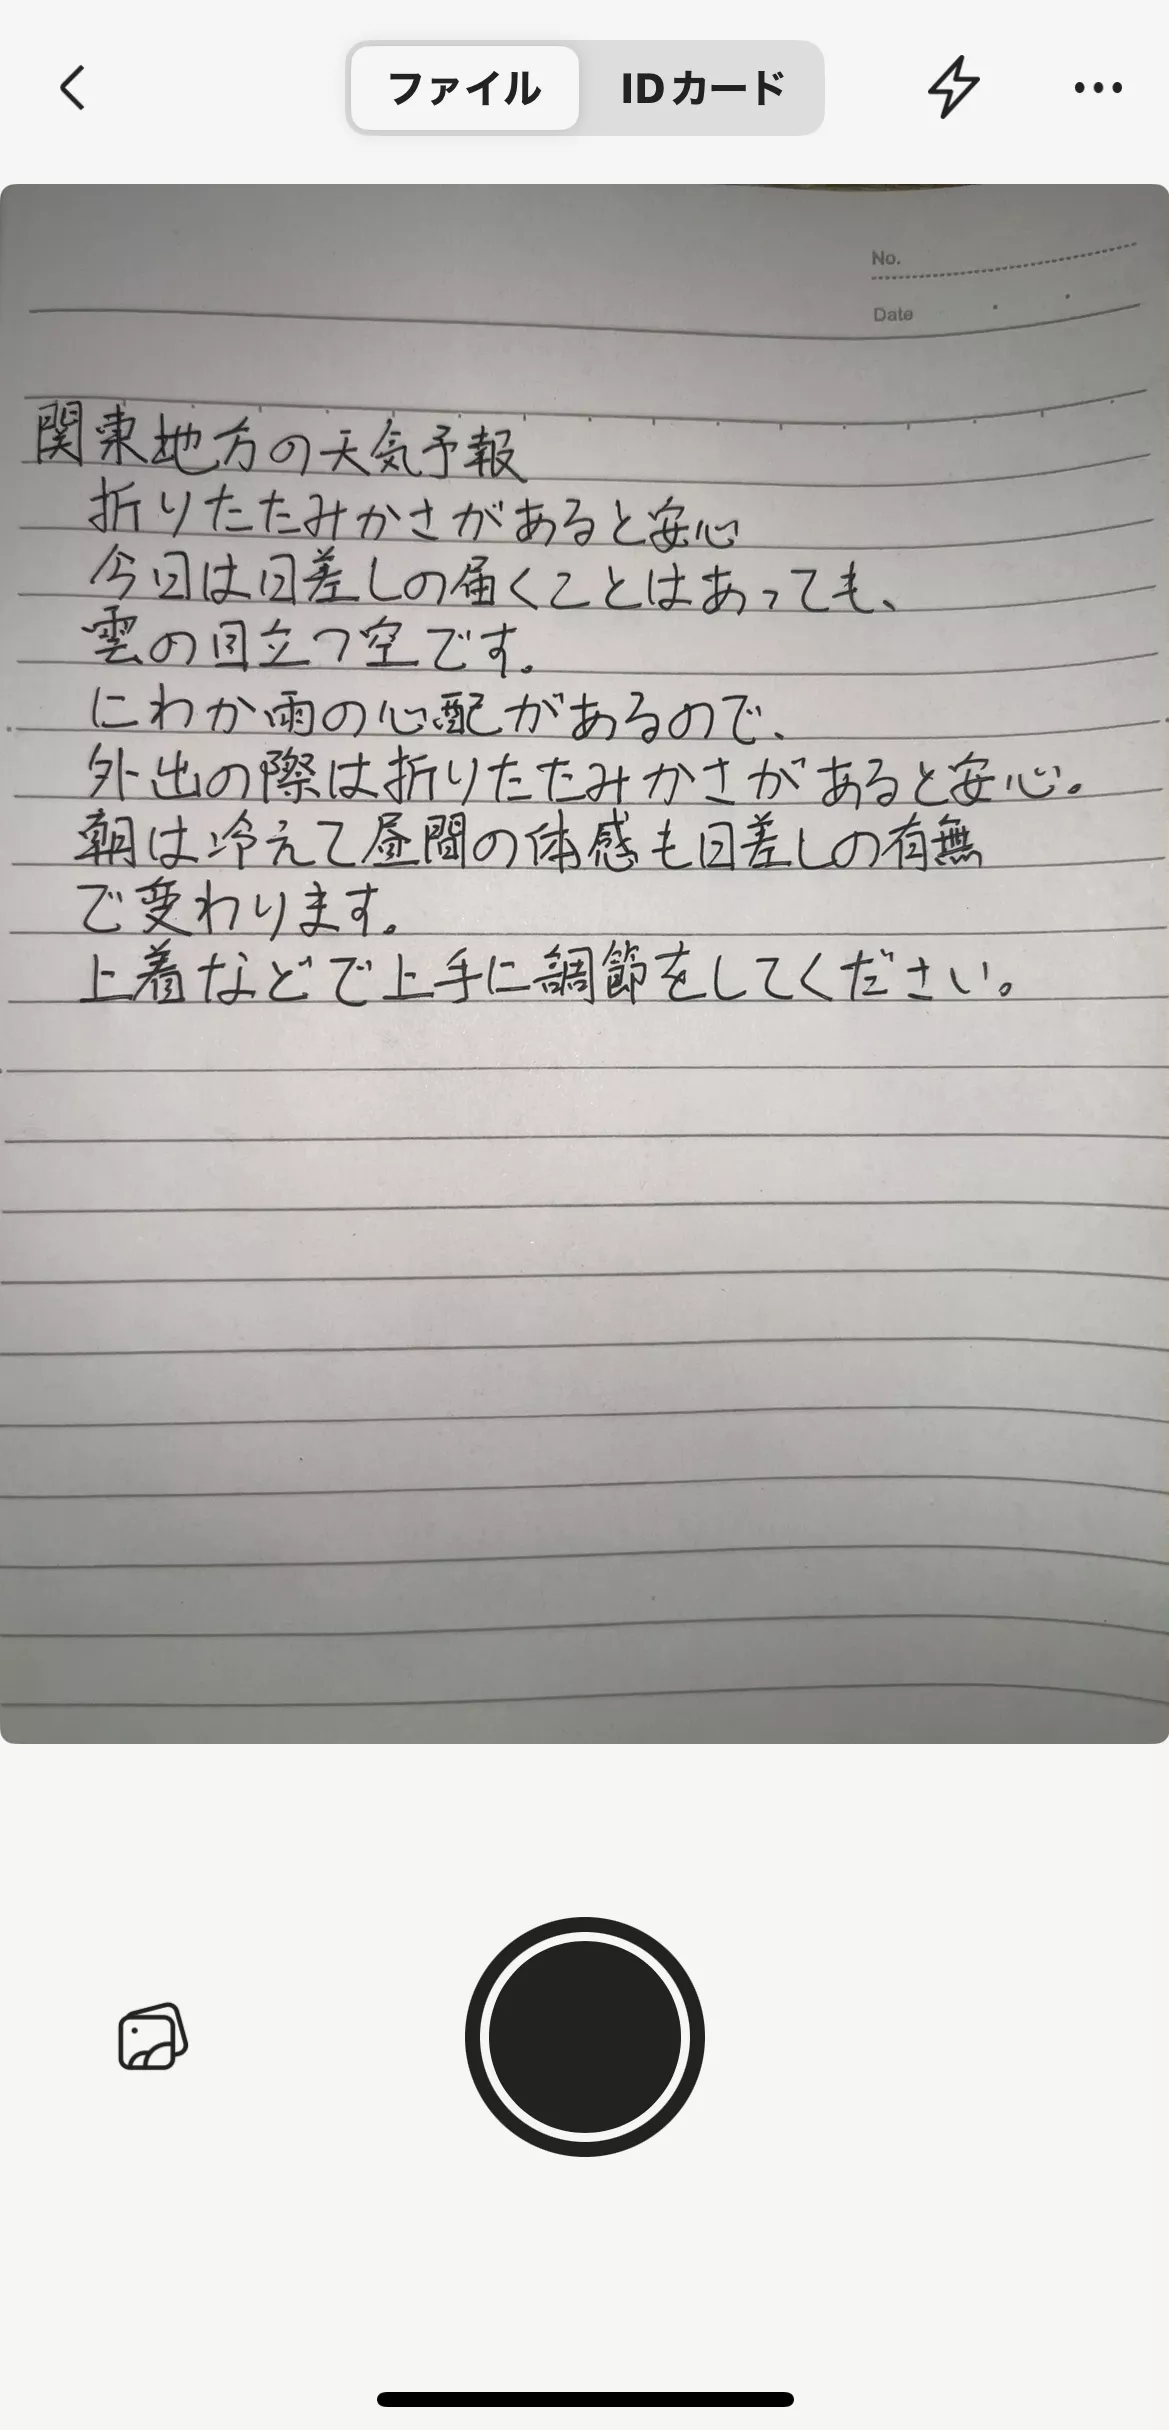 ファイル IDカード
No.
Date
関東地方の天気予報
折りたたみかさがあると安心
今日は日差しの届くことはあっても、
雲の目立つ空です。
にわか雨の心配があるので、
外出の際は折りたたみかさがあると安心。
朝は冷えて昼間の体感も日差しの有無
で変わります。
上着などで上手に調節をしてください。